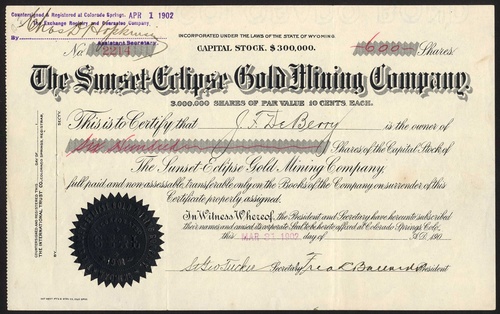 Countersigned & Registered at Colorado Springs, APR 1 1902
The Exchange Registry and Guarantee Company,
By Chas D Hopkins
Assistant Secretary
INCORPORATED UNDER THE LAWS OF THE STATE OF WYOMING.
No. CAPITAL STOCK, $300,000. 600 Shares
The Sunset-Eclipse Gold Mining Company.
3,000,000 SHARES OF PAR VALUE 10 CENTS, EACH.
This is to Certify that J. F. DeBerry is the owner of
Six Hundred Shares of the Capital Stock of
The Sunset-Eclipse Gold Mining Company,
full paid and non assessable, transferable only on the Books of the Company on surrender of this
Certificate properly assigned.
In Witness Whereof, the President and Secretary have hereunto subscribed
their names and caused its corporate Seal to be hereto affixed at Colorado Springs, Colo.
this MAR 21 1902 day of A.D. 190
Secretary President
COUNTERSIGNED AND REGISTERED THIS DAY OF
THE INTERNATIONAL TRUST CO.
SEC'Y.